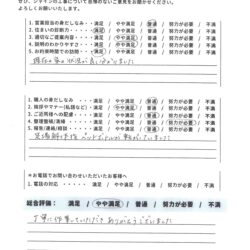 ぜひ、シャインの工事について忌憚のないご意見をお聞かせください。
よろしくお願いいたします。
1. 営業担当の身だしなみ・・・満足 / やや満足 / 普通 / 努力が必要 / 不満
2. 住まいの診断力・・・満足 / やや満足 / 普通 / 努力が必要 / 不満
3. 適切なご提案内容・・・満足 / やや満足 / 普通 / 努力が必要 / 不満
4. 説明のわかりやすさ・・・満足 / やや満足 / 普通 / 努力が必要 / 不満
5. 訪問・対応の早さ・・・満足 / やや満足 / 普通 / 努力が必要 / 不満
現在の家の状況が良い分りました
1. 職人の身だしなみ・・・満足 / やや満足 / 普通 / 努力が必要 / 不満
2. ご近所様への配慮・・・満足 / やや満足 / 普通 / 努力が必要 / 不満
3. 整理整頓/清掃・・・満足 / やや満足 / 普通 / 努力が必要 / 不満
4. 報告/連絡/相談・・・満足 / やや満足 / 普通 / 努力が必要 / 不満
足場解体後ペットボトルが転がっていました
※お電話でお問い合わせいただいたお客様へ
1. 電話の対応・・・満足 / やや満足 / 普通 / 努力が必要 / 不満
総合評価： 満足 / やや満足 / 普通 / 努力が必要 / 不満
丁寧に作業していただき ありがとうございました